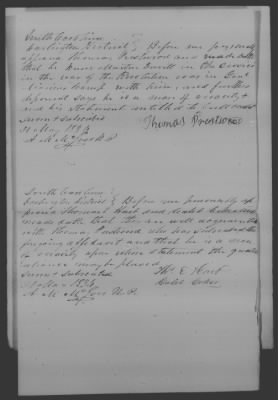 South Carolina
Darlington District } Before me personally
appeared Thomas Prestwood and made oath
that he knew Martin Dewitt in the service
in the war of the Revolution was in Genl
Marions Camp with him, and further
deponent says he is a man of veracity &
and his statement entitled to full credit
Sworn & subscribed
31 May 1834
Thomas Prestwood
South Carolina
Darlington District } Before me personally ap
peared Thomas E Hart and Caleb Coker
made oath that they are well acquainted
with Thomas Prestwood who has subscribed the
foregoing affidavit and that he is a man
of veracity upon whose statement the
reliance may be placed
Sworn & subscribed
Thos E Hart
Caleb Coker